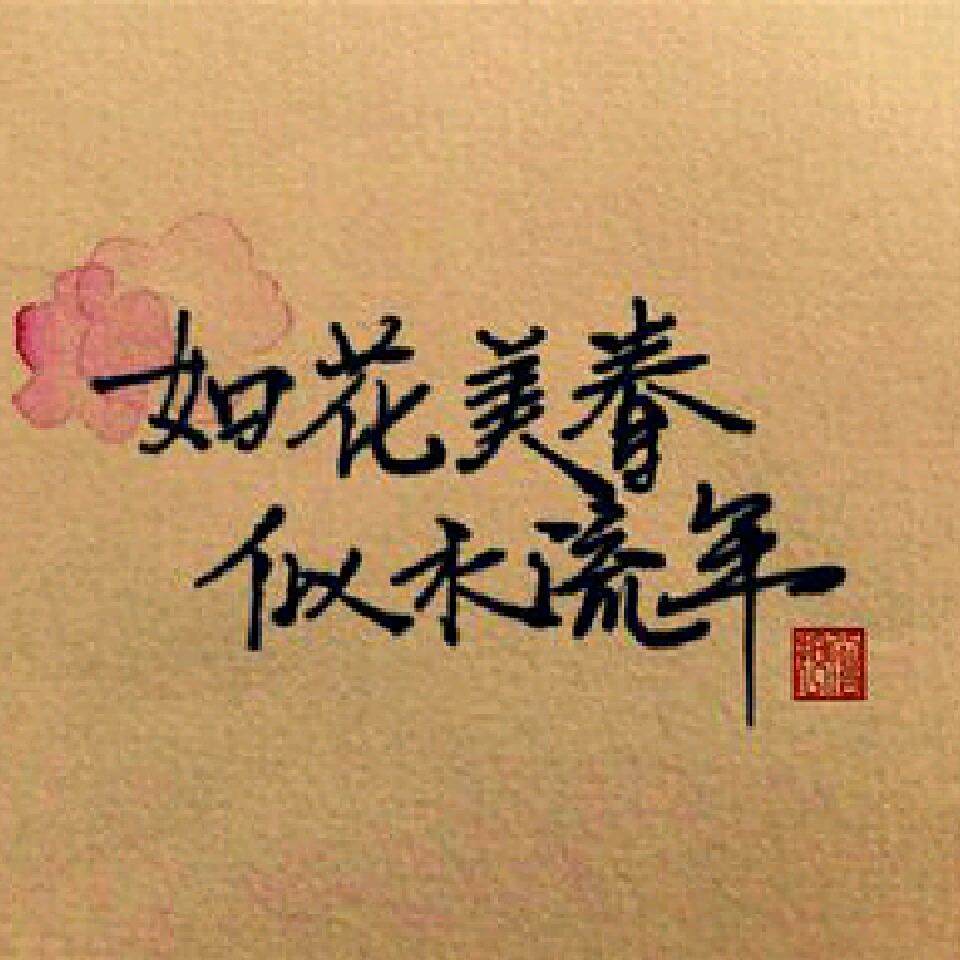 如花美春
似水流年